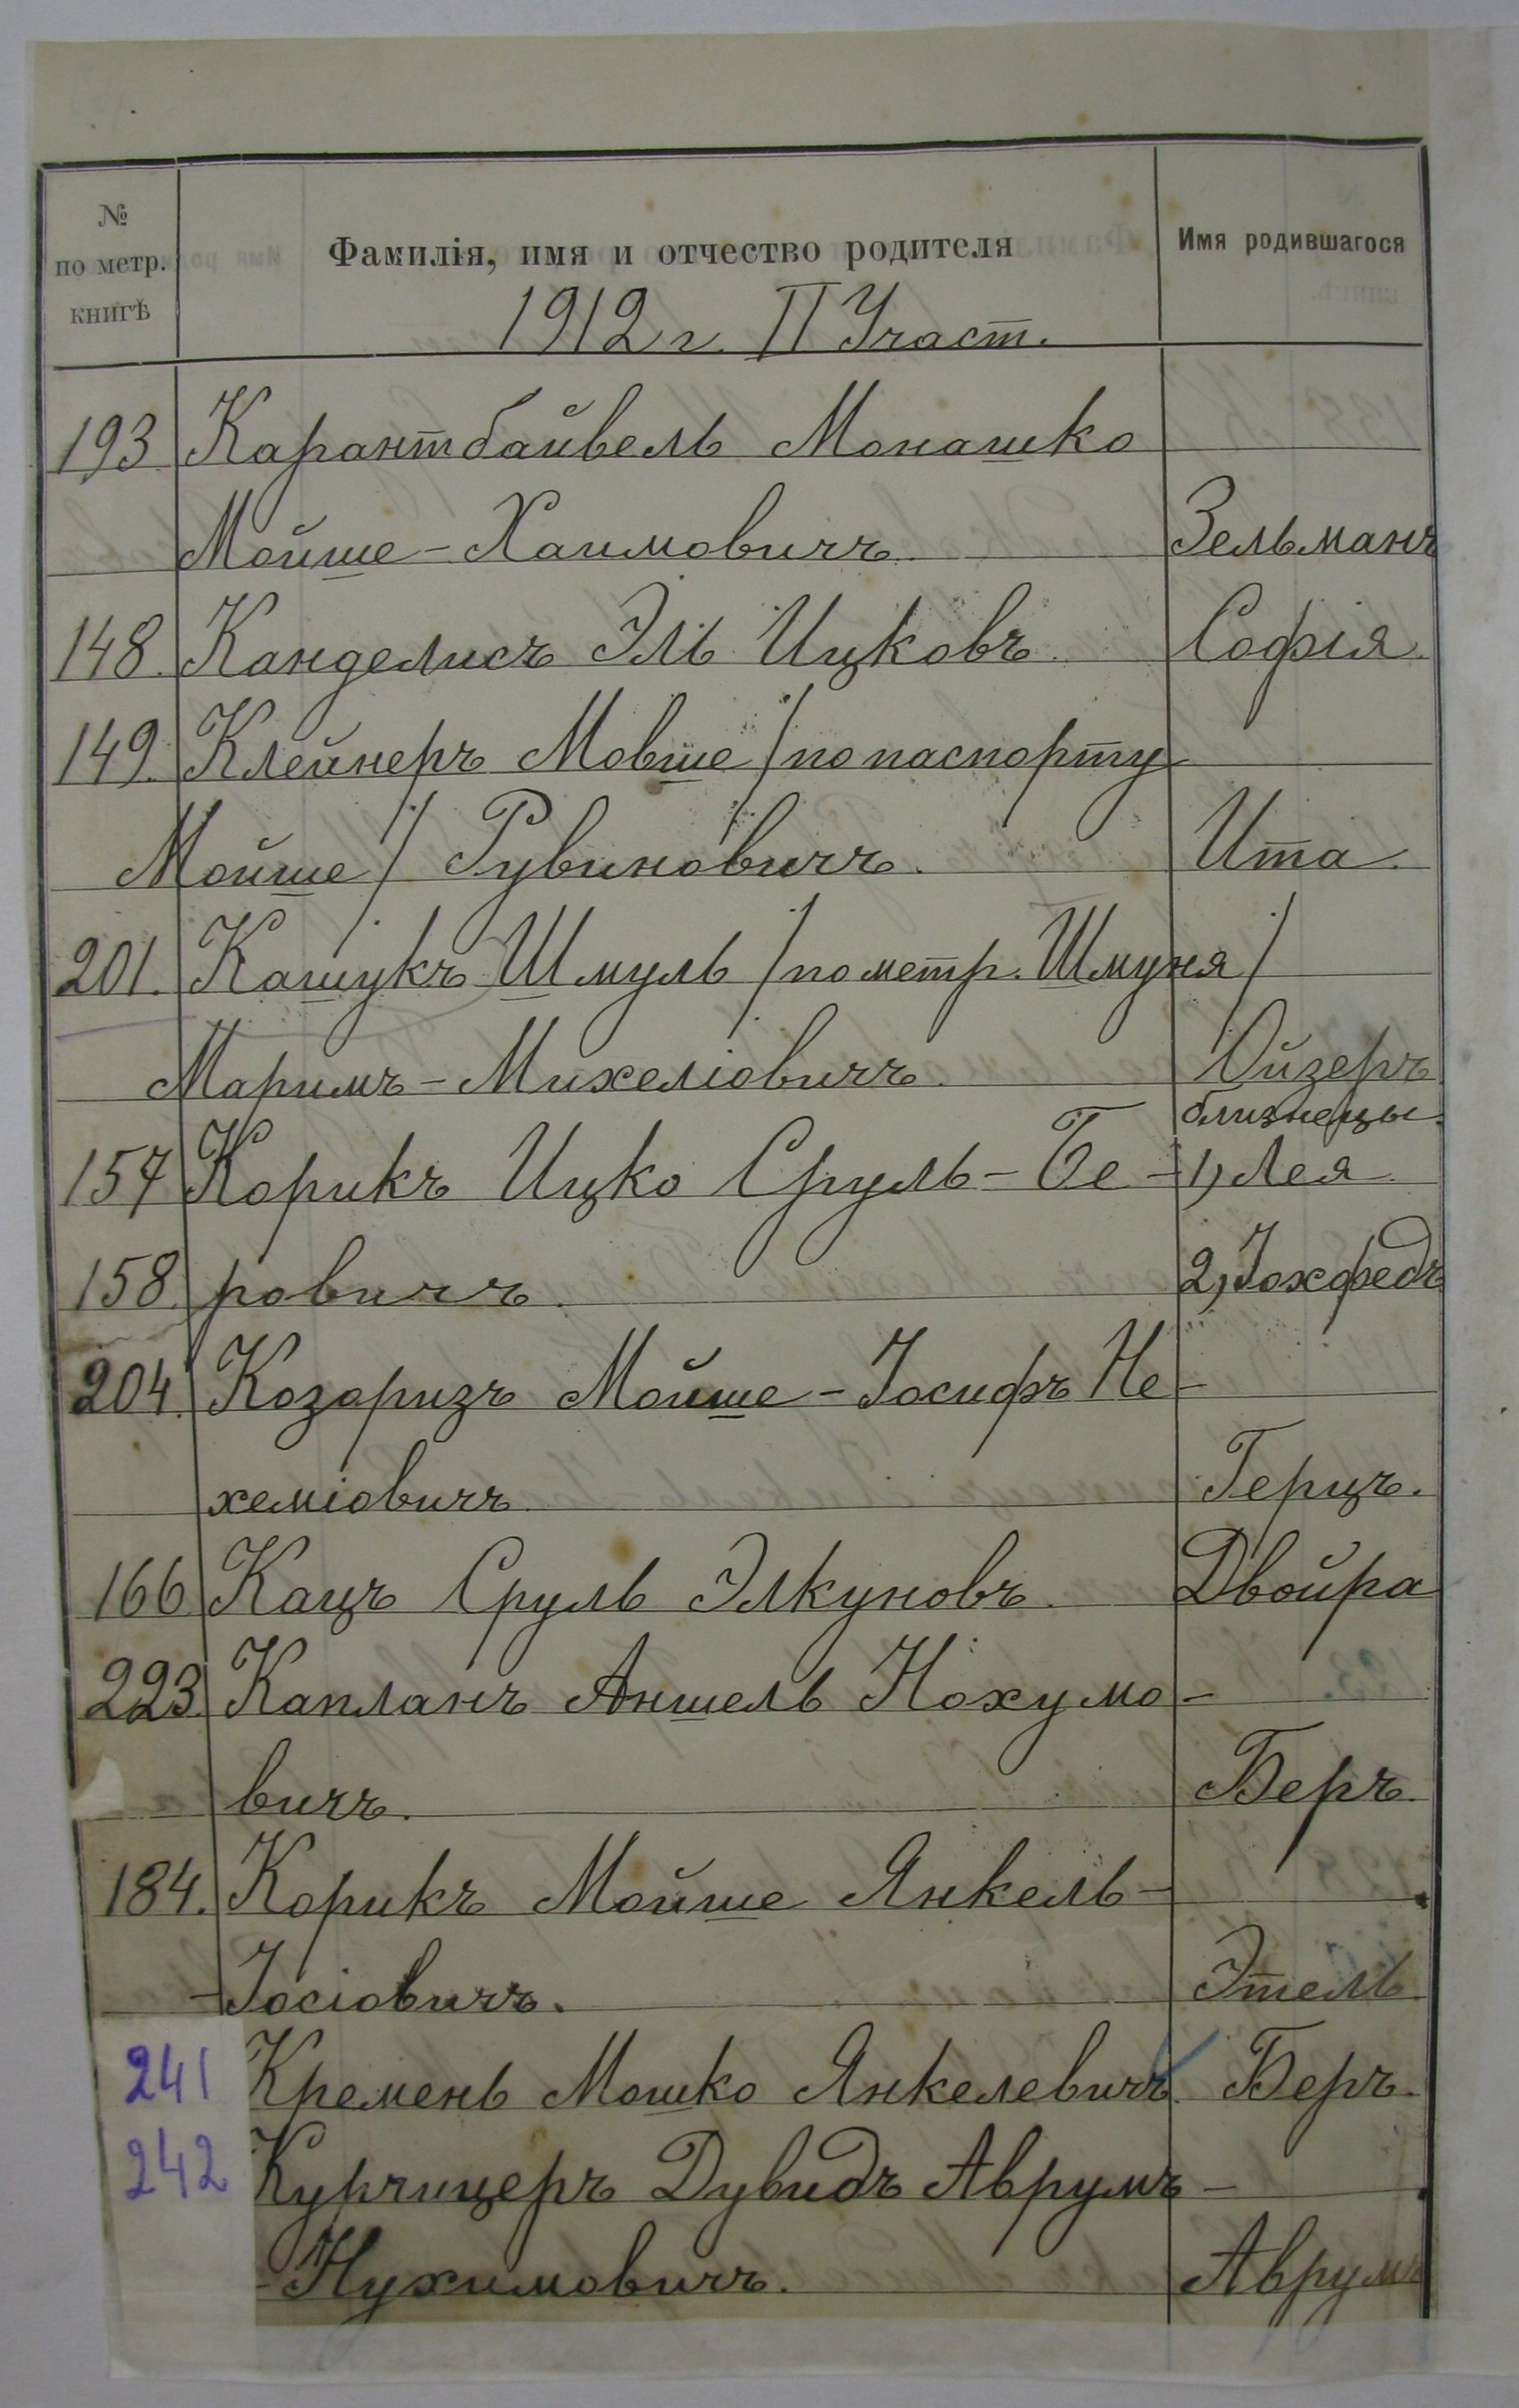 № по метр. книгѣ
Фамилія, имя и отчество родителя
Имя родившагося
1912 г. II Участ.
193 Карантбайвель Монашко
Мойше-Хаимовичъ Зельманъ
148. Канделисъ Эль Ицковъ. Софія.
149. Клейнеръ Мовше /по паспорту
Мойше/ Рувиновичъ. Ита.
201. Кашукъ Шмуль /по метр. Шмуня/
Маримъ-Михеліовичъ. Ойзеръ
близнецы.
157 Корикъ Ицко Сруль-Бе- 1, Лея
158. ровичъ. 2, Іохфедъ
204. Козаризъ Мойше-Іосифъ Не-
хеміовичъ Герцъ.
166 Кацъ Сруль Элкуновъ. Двойра
223. Капланъ Аншель Нохумо-
вичъ. Беръ.
184. Корикъ Мойше Янкель-
-Іосіовичъ. Этель
241 Кремень Мошко Янкелевичъ. Беръ.
242 Курчицеръ Дувидъ Аврумъ-
-Нухимовичъ. Аврумъ